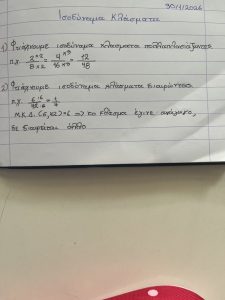 30/1/2026
Ισοδύναμα Κλάσματα
1) Φτιάχνουμε ισοδύναμα κλάσματα πολλαπλασιάζοντας
π.χ. 2×2/8×2 = 4×3/16×3 = 12/48
2) Φτιάχνουμε ισοδύναμα κλάσματα διαιρώντας
π.χ. 6:6/42:6 = 1/7
Μ.Κ.Δ. =6 => το κλάσμα έγινε ανάγωγο,
δε διαιρείται άλλο